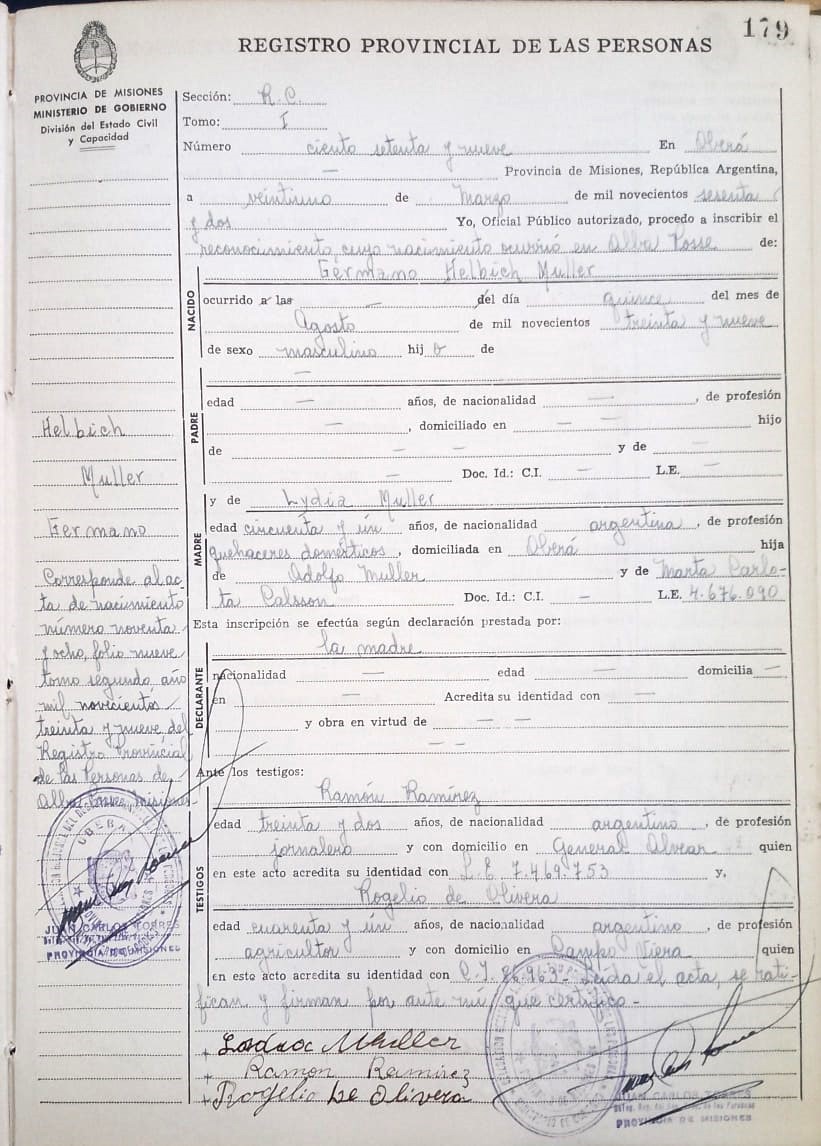 179
REGISTRO PROVINCIAL DE LAS PERSONAS
PROVINCIA DE MISIONES
MINISTERIO DE GOBIERNO
División del Estado Civil
y Capacidad
Sección: R.C.
Tomo: I
Número ciento setenta y nueve En Oberá
— Provincia de Misiones, República Argentina,
a veintiuno de Marzo de mil novecientos sesenta
y dos Yo, Oficial Público autorizado, procedo a inscribir el
reconocimiento, cuyo nacimiento ocurrió en Alba Posse de:
Germano Helbich Muller
NACIDO
ocurrido a las — del día quince del mes de
Agosto de mil novecientos treinta y nueve
de sexo masculino hijo de
—
PADRE
edad — años, de nacionalidad — , de profesión
— , domiciliado en — — hijo
de — — y de —
— Doc. Id.: C.I. — L.E. —
MADRE
y de Lydia Muller
edad cincuenta y ún años, de nacionalidad argentina , de profesión
quehaceres domésticos , domiciliada en Oberá hija
de Adolfo Muller y de Marta Carlo-
ta Calsson Doc. Id.: C.I. — L.E. 4.676.090
Esta inscripción se efectúa según declaración prestada por:
la madre
DECLARANTE
nacionalidad — edad — domicilia —
en — Acredita su identidad con —
y obra en virtud de — —
— —
Ante los testigos:
TESTIGOS
Ramón Ramírez
edad treinta y dos años, de nacionalidad argentino , de profesión
jornalero y con domicilio en General Alvear quien
en este acto acredita su identidad con L.E 7.469.753 y,
Rogelio de Olivera
edad cuarenta y ún años, de nacionalidad argentino , de profesión
agricultor y con domicilio en Campo Viera quien
en este acto acredita su identidad con C.I. 86.963- Leída el acta, se rati-
fican y firman por ante mí, que certifico-
+ Muller
+ Ramon Ramirez
+ Rogelio De Olivera
Helbich
Muller
Germano
Corresponde al ac-
ta de nacimiento
número noventa
y ocho, folio nueve
tomo segundo año
mil novecientos
treinta y nueve del
Registro Provincial
de las Personas de
Alba Posse Misiones-
OBERA
JUAN CARLOS TORRES
PROVINCIA DE MISIONES
JUAN CARLOS TORRES
PROVINCIA DE MISIONES